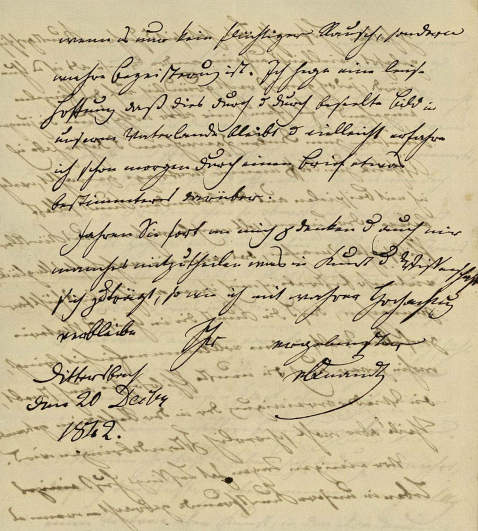 wenn es nur kein flüchtiger Rausch, sondern
wahre Begeisterung ist. Ich hege eine leise
Hoffnung daß dies durch u durch beseelte Bild in
unserem Vaterlande bleibt u vielleicht erfahre
ich schon morgen durch einen Brief etwas
bestimmteres darüber.
Fahren Sie fort an mich z denken u auch mir
manches mitzutheilen was in Kunst u Wissenschaft
sich zuträgt, so wie ich mit wahrer Hochachtung
verbleibe Ihr ergebenster
vQuandt
Dittersbach
den 20 Decbr
1842.